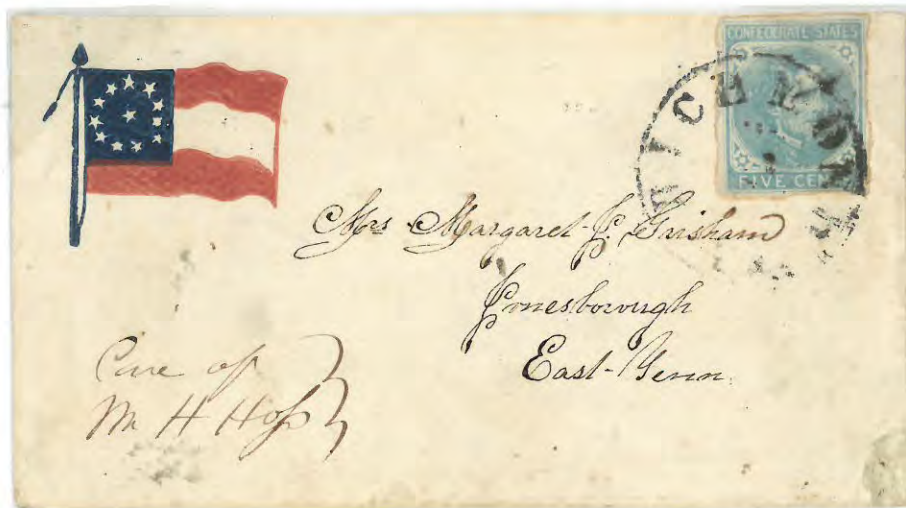 CONFEDERATE STATES
FIVE CENTS
RICHMOND
Mrs Margaret J. Grisham
Jonesborough
East-Tenn.
Care of
M H Hop